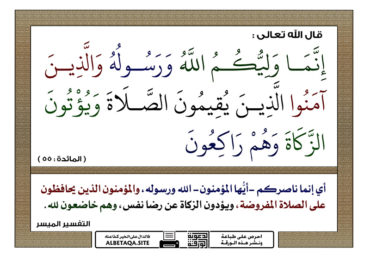 قال الله تعالى :
إِنَّمَا وَلِيُّكُمُ اللَّهُ وَرَسُولُهُ وَالَّذِينَ
آمَنُوا الَّذِينَ يُقِيمُونَ الصَّلَاةَ وَيُؤْتُونَ
الزَّكَاةَ وَهُمْ رَاكِعُونَ
( المائدة : ٥٥ )
أي إنما ناصركم -أيُّها المؤمنون- الله ورسوله، والمؤمنون الذين يحافظون
على الصلاة المفروضة، ويؤدون الزكاة عن رضا نفس، وهم خاضعون لله.
التفسير الميسر
احرص على طباعة
ونشر هذه الورقة
الورقة
فالدال على الخير كفاعله
ALBETAQA.SITE